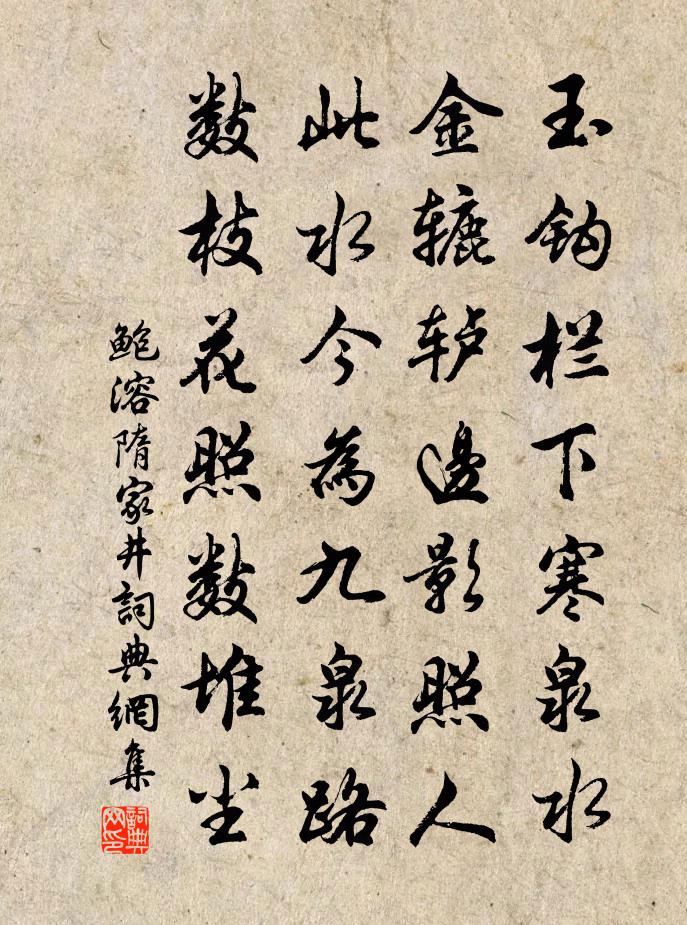 玉钩栏下寒泉水
金辘轳邊影照人
此水今為九泉路
数枝花照数堆尘
鲍溶隋家井詞典網集
詞典网印